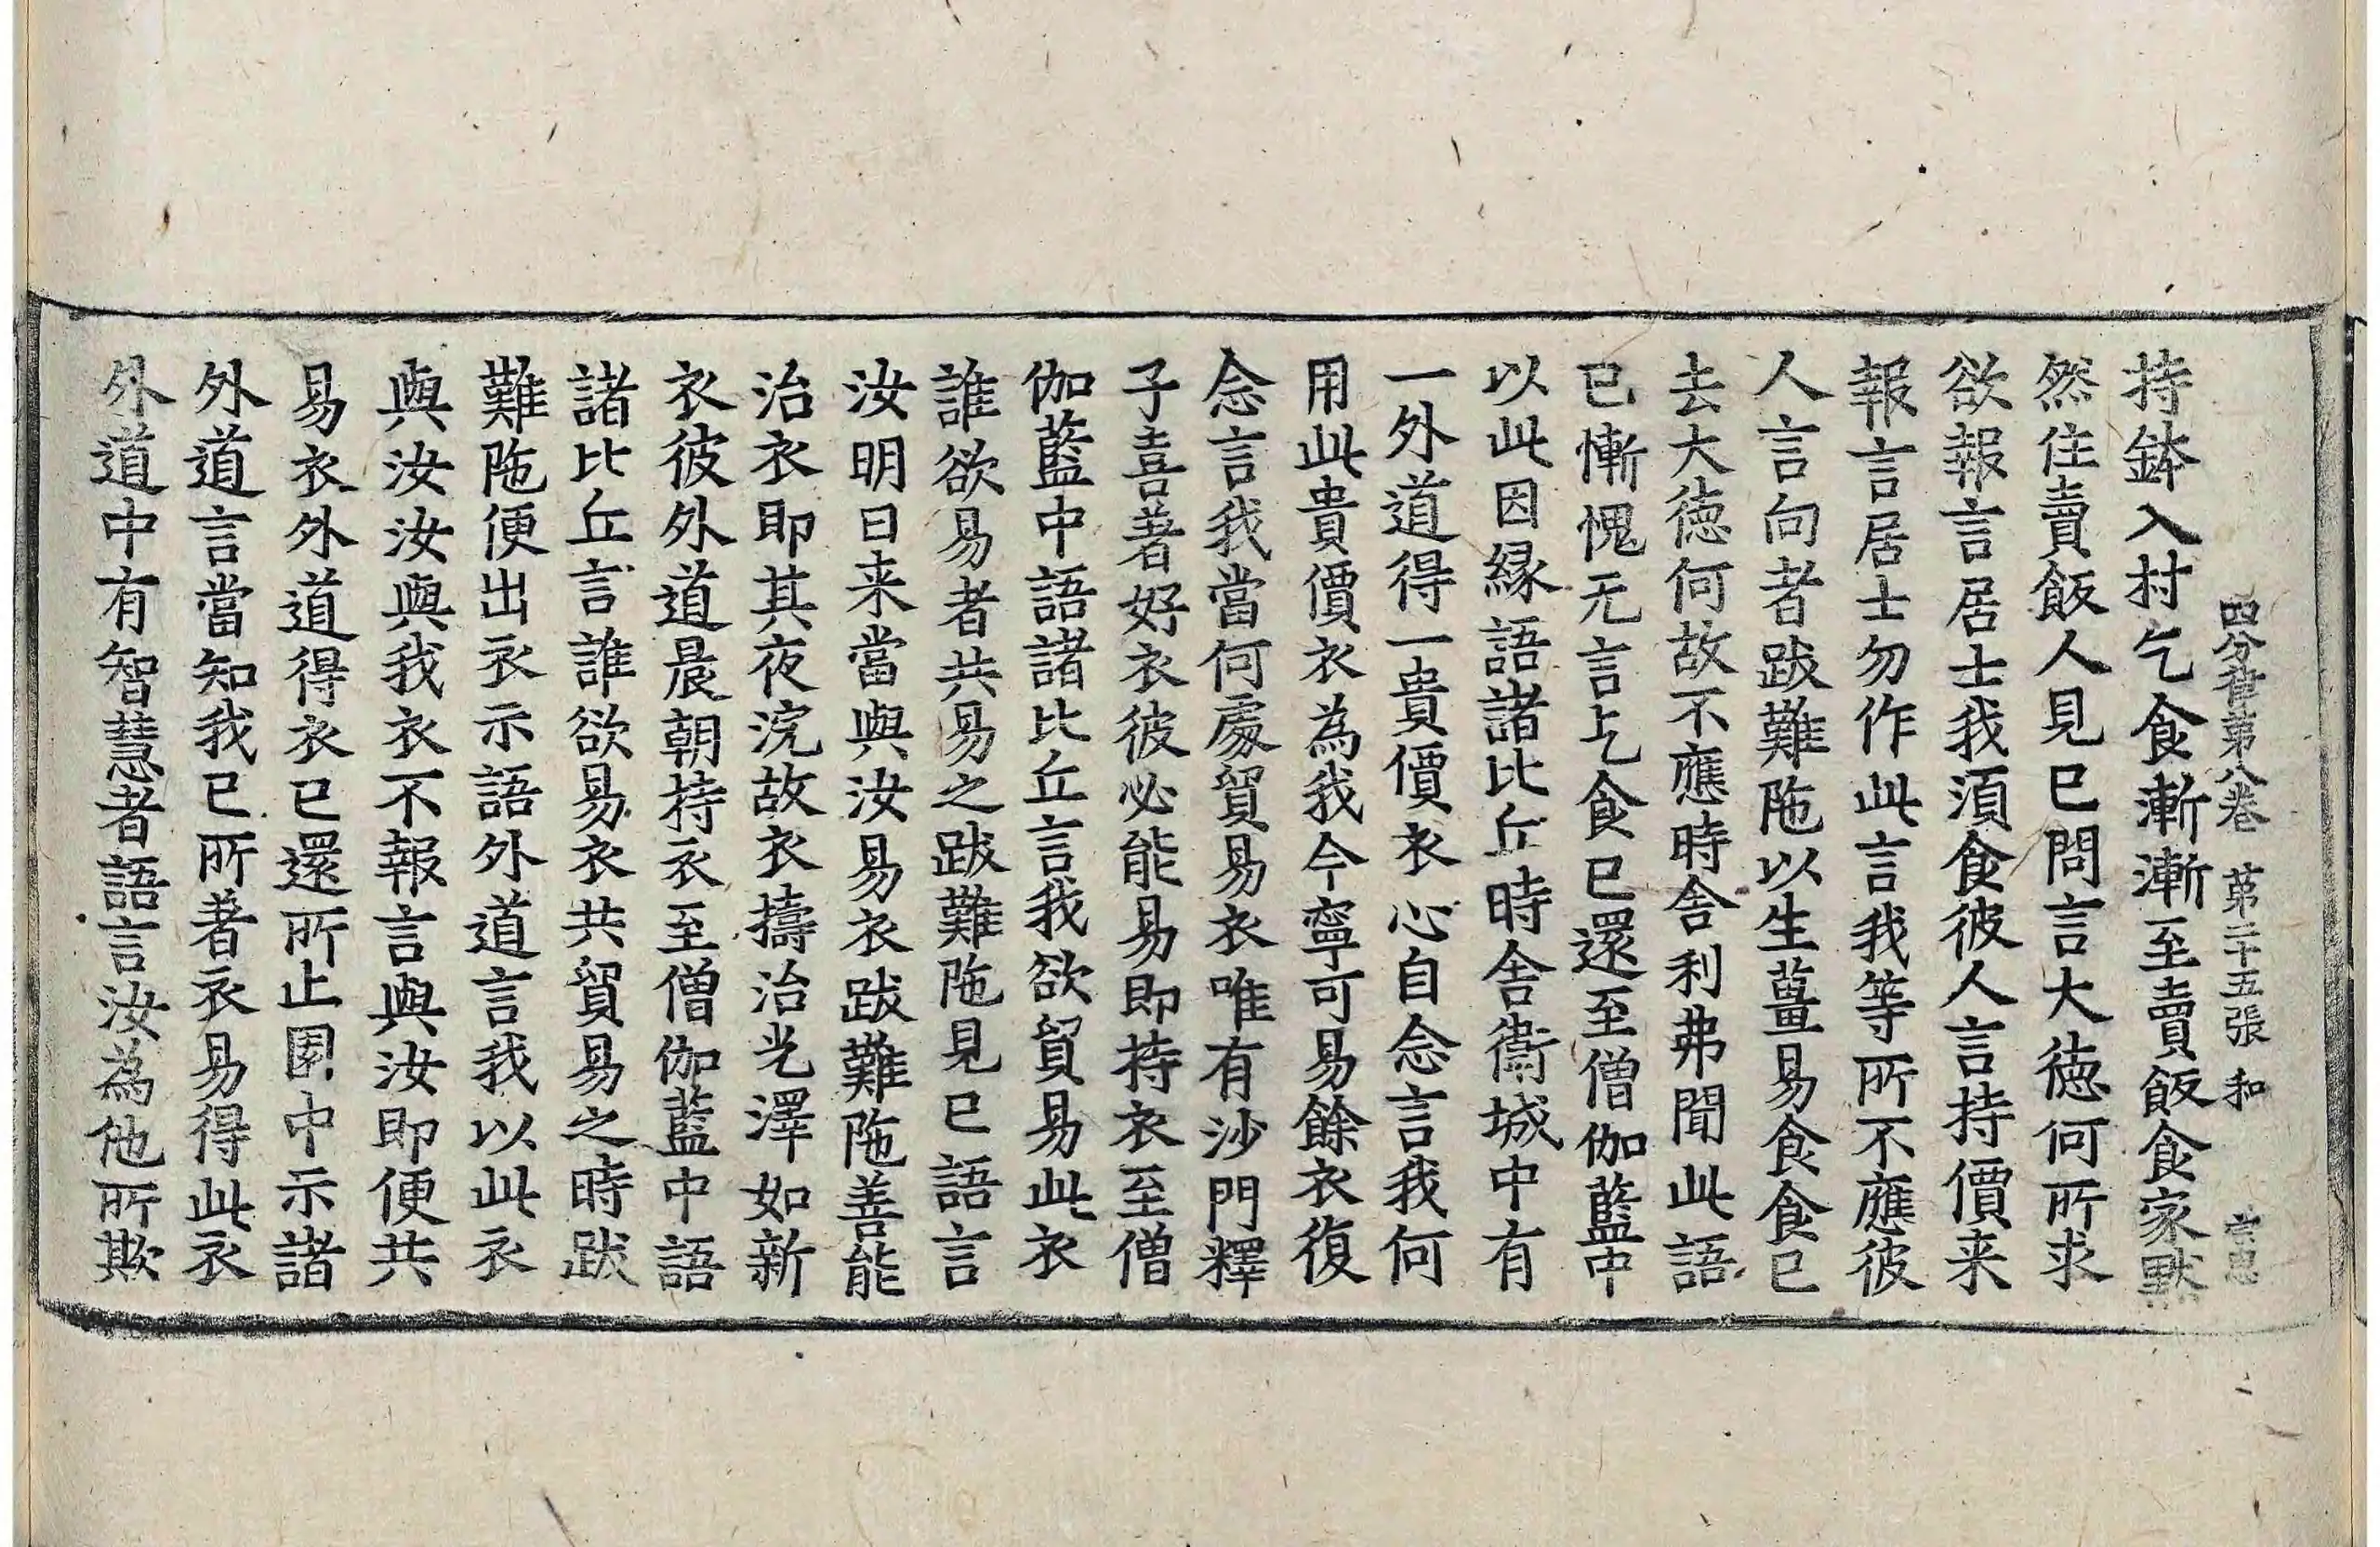 四分律第八卷 第二十五張 和
持鉢入村乞食漸漸至賣飯食家默
然住賣飯人見已問言大徳何所求
欲報言居士我湏食彼人言持價来
報言居士勿作此言我等所不應彼
人言向者跋難陁以生薑易食食已
去大徳何故不應時舎利弗聞此語
已慚愧无言乞食已還至僧伽藍中
以此因縁語諸比丘時舎衛城中有
一外道得一貴價衣心自念言我何
用此貴價衣為我今寧可易餘衣復
念言我當何處貿易衣唯有沙門釋
子喜著好衣彼必能易即持衣至僧
伽藍中語諸比丘言我欲貿易此衣
誰欲易者共易之跋難陁見已語言
汝明日来當與汝易衣跋難陁善能
治衣即其夜浣故衣擣治光澤如新
衣彼外道晨朝持衣至僧伽藍中語
諸比丘言誰欲易衣共貿易之時跋
難陁便出衣示語外道言我以此衣
與汝汝與我衣不報言與汝即便共
易衣外道得衣已還所止園中示諸
外道言當知我已所著衣易得此衣
外道中有智慧者語言汝為他所欺